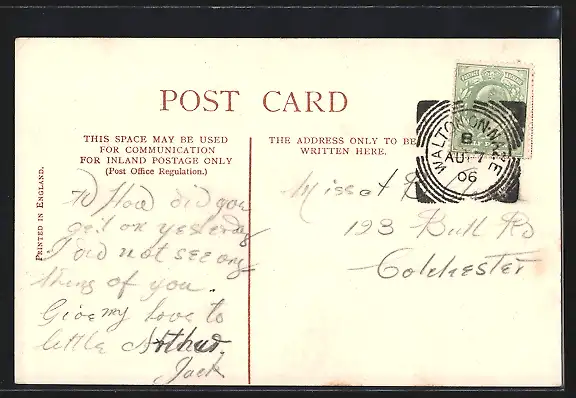 POST CARD
THIS SPACE MAY BE USED
FOR COMMUNICATION
FOR INLAND POSTAGE ONLY
(Post Office Regulation.)
THE ADDRESS ONLY TO BE
WRITTEN HERE.
PRINTED IN ENGLAND.
WALTON-ON-NAZE
B
AU 7
06
How did you
get on yesterday
I did not see any
thing of you.
Give my love to
little Arthur.
Jack
Miss
193 Bull Rd
Colchester